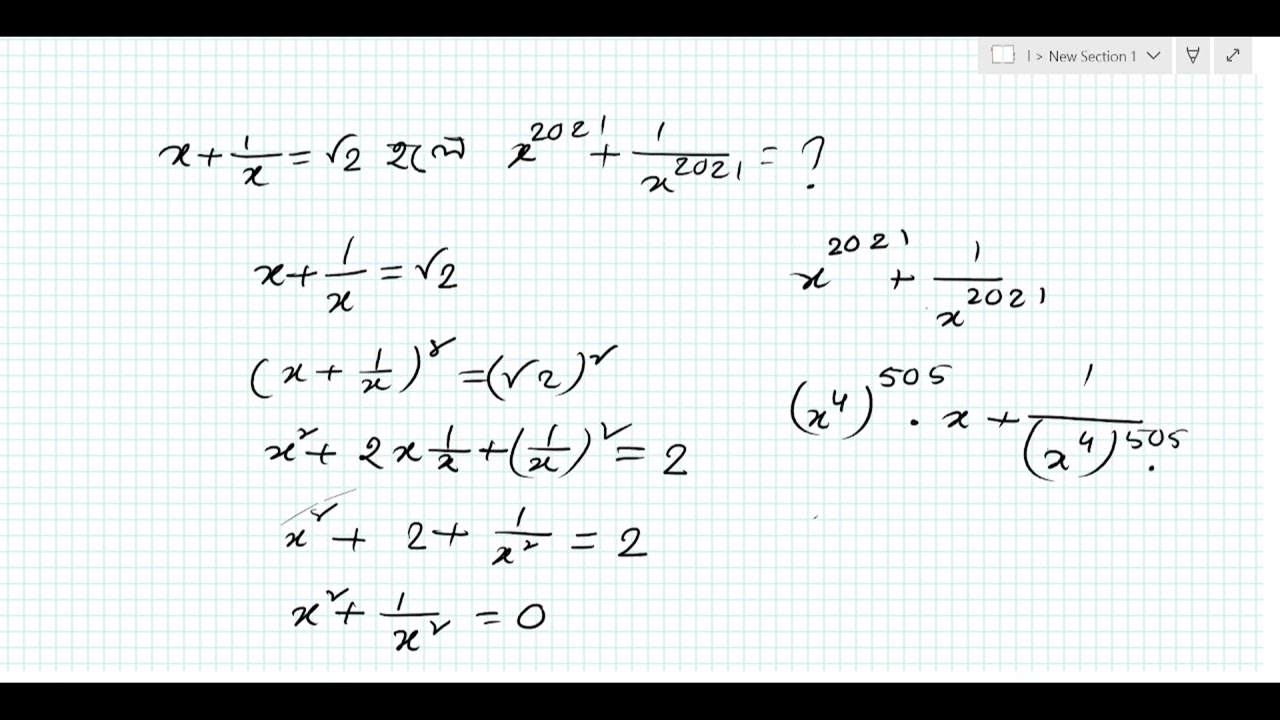 I > New Section 1
x + 1/x = √2 হলে x^2021 + 1/x^2021 = ?
x + 1/x = √2
(x + 1/x)^২ = (√2)^২
x^২ + 2x 1/x + (1/x)^২ = 2
x^২ + 2 + 1/x^২ = 2
x^২ + 1/x^২ = 0
x^2021 + 1/x^2021
(x^4)^505 . x + 1/(x^4)^505 .